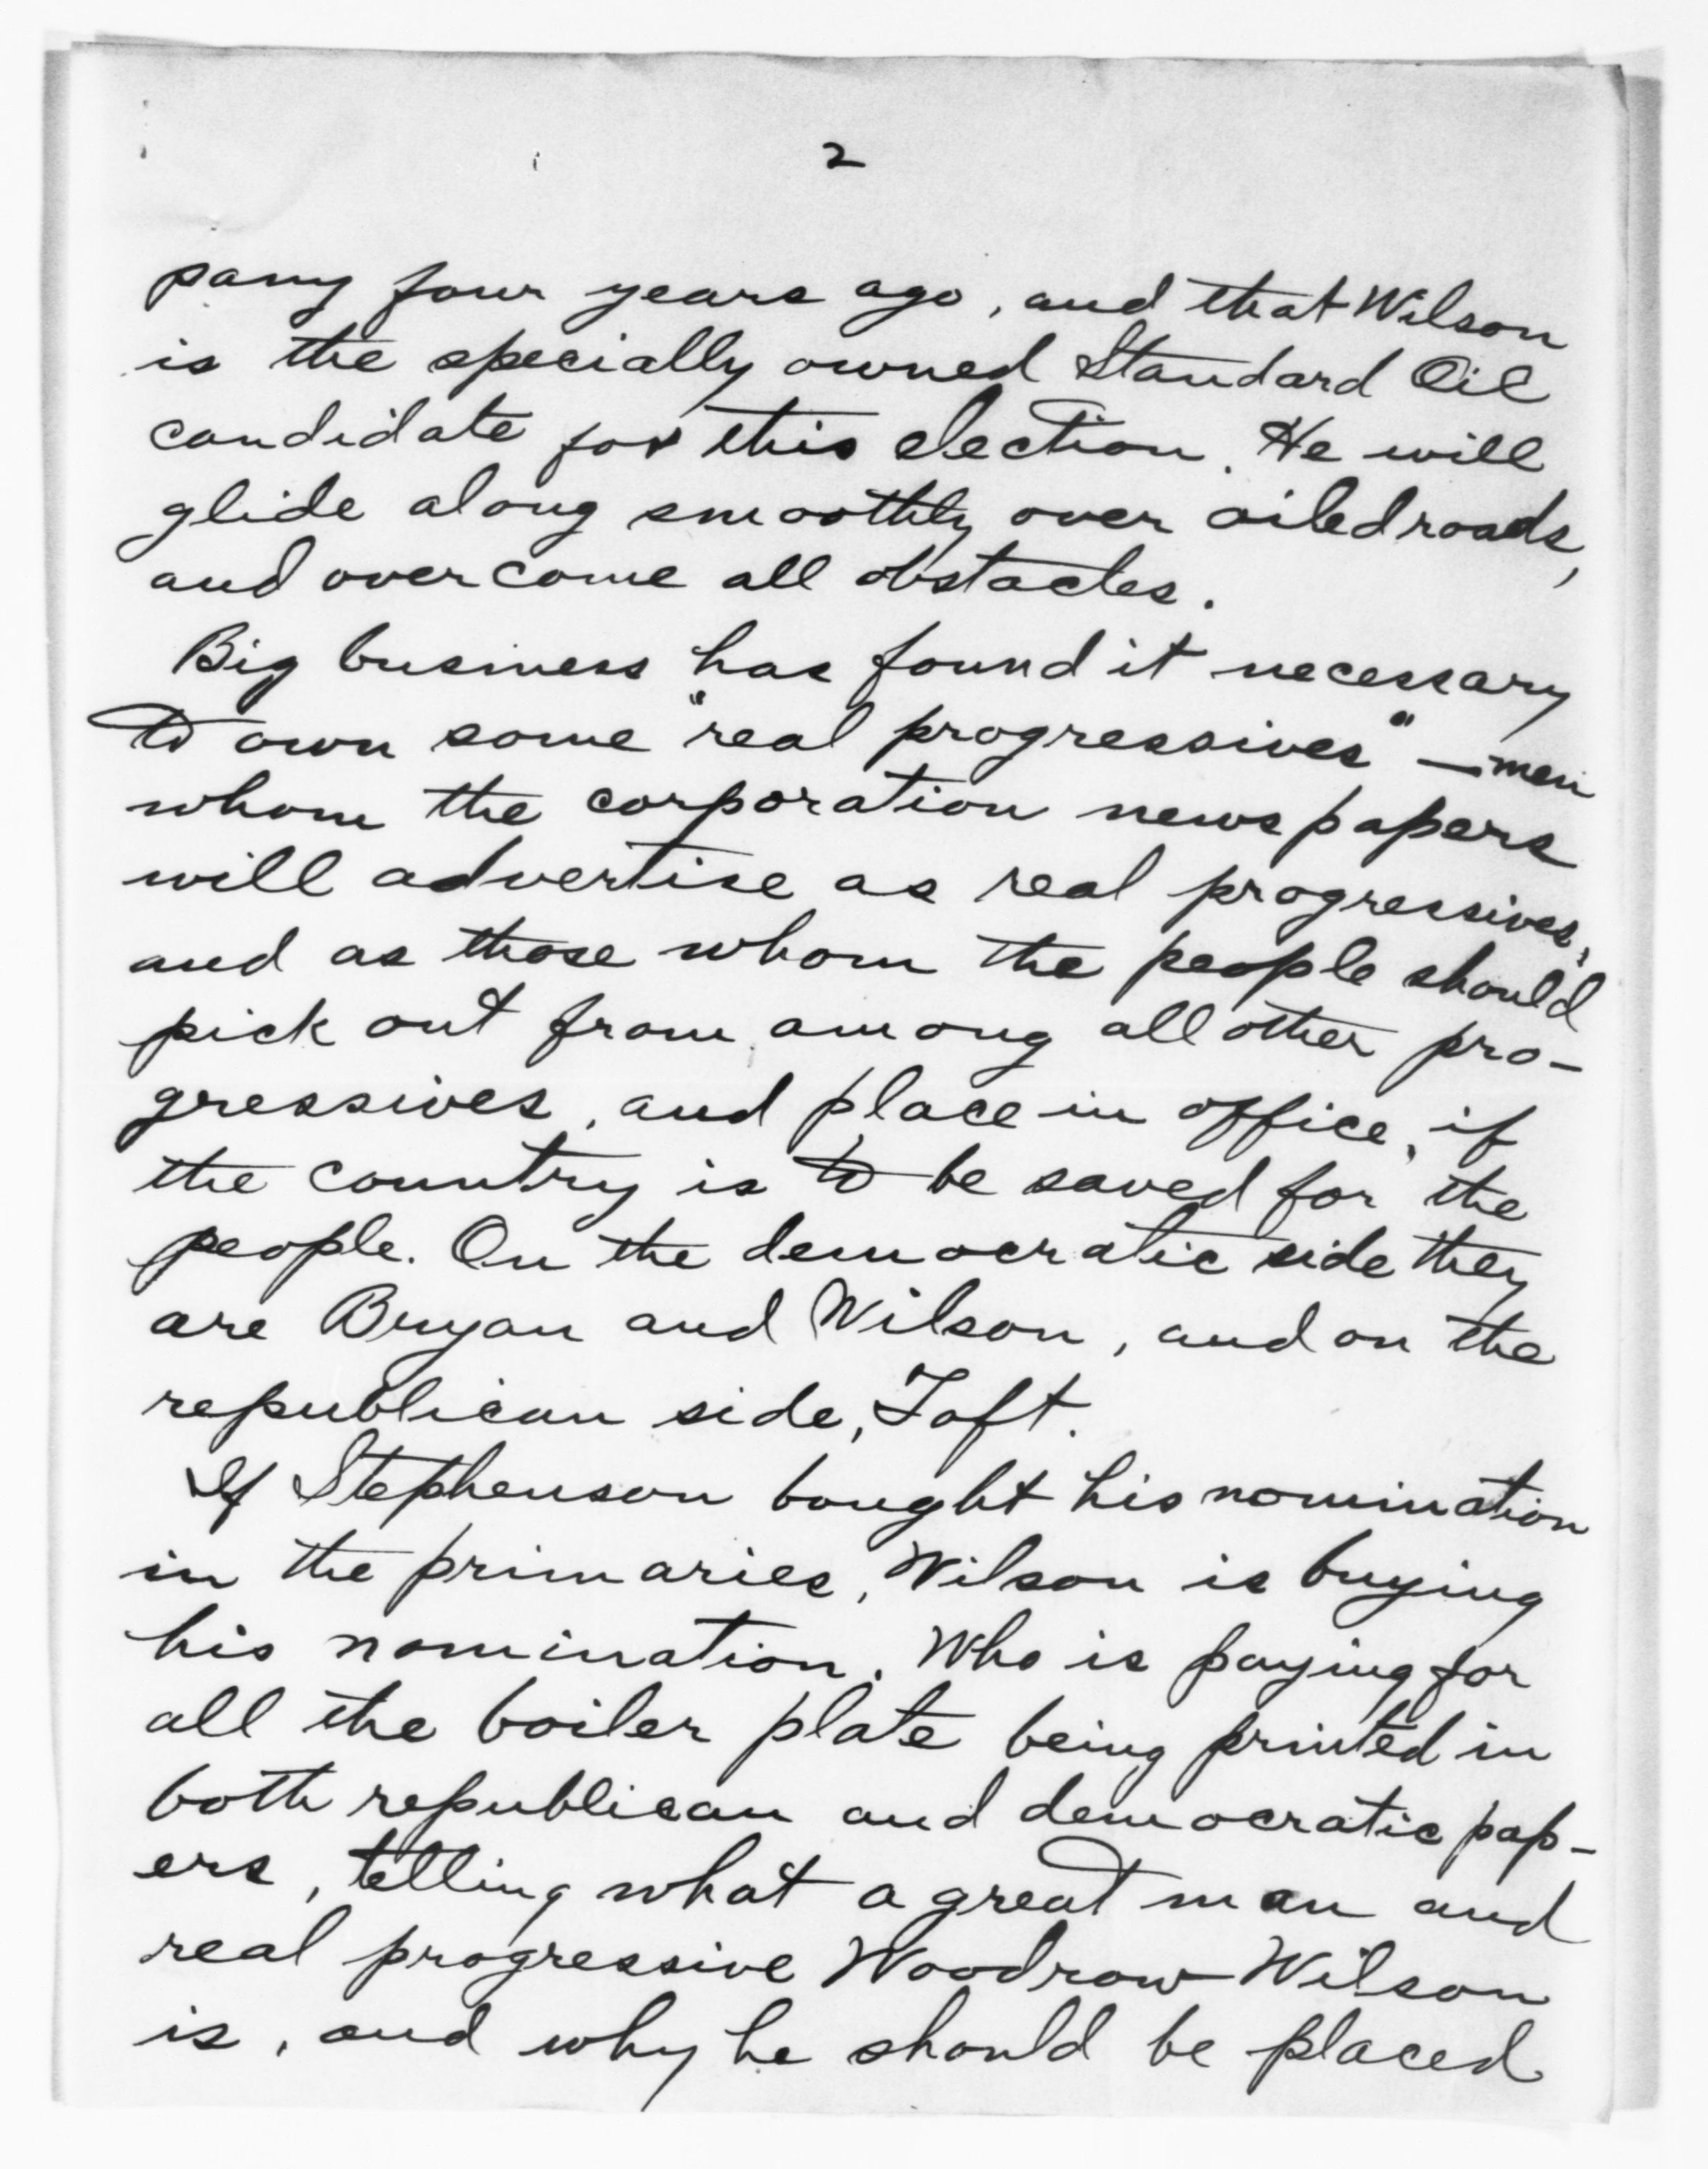 2
pany four years ago, and that Wilson
is the specially owned Standard Oil
candidate for this election. He will
glide along smoothly over oiled roads,
and overcome all obstacles.
Big business has found it necessary
to own some "real progressives" — men
whom the corporation newspapers
will advertise as real progressives,
and as those whom the people should
pick out from among all other pro-
gressives, and place in office, if
the country is to be saved for the
people. On the democratic side they
are Bryan and Wilson, and on the
republican side, Taft.
If Stephenson bought his nomination
in the primaries, Wilson is buying
his nomination. Who is paying for
all the boiler plate being printed in
both republican and democratic pap-
ers, telling what a great man and
real progressive Woodrow Wilson
is, and why he should be placed